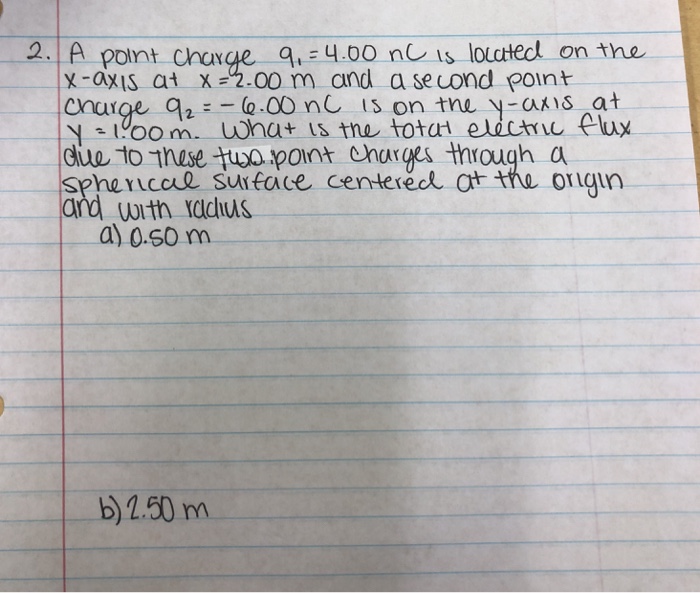 2. A point charge q₁ = 4.00 nC is located on the
x-axis at x = 2.00 m and a second point
charge q₂ = -6.00 nC is on the y-axis at
y = 1.00 m. What is the total electric flux
due to these two point charges through a
spherical surface centered at the origin
and with radius
a) 0.50 m
b) 2.50 m